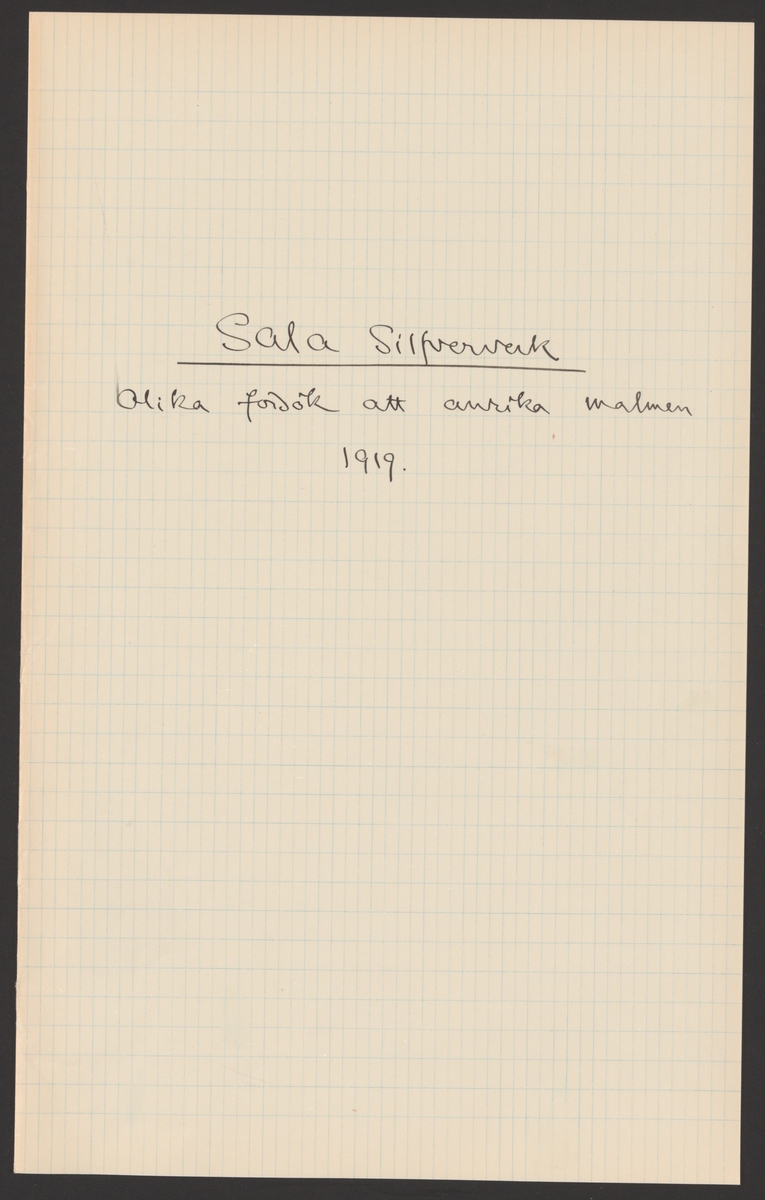 Sala Silfververk
Olika försök att anrika malmen
1919.